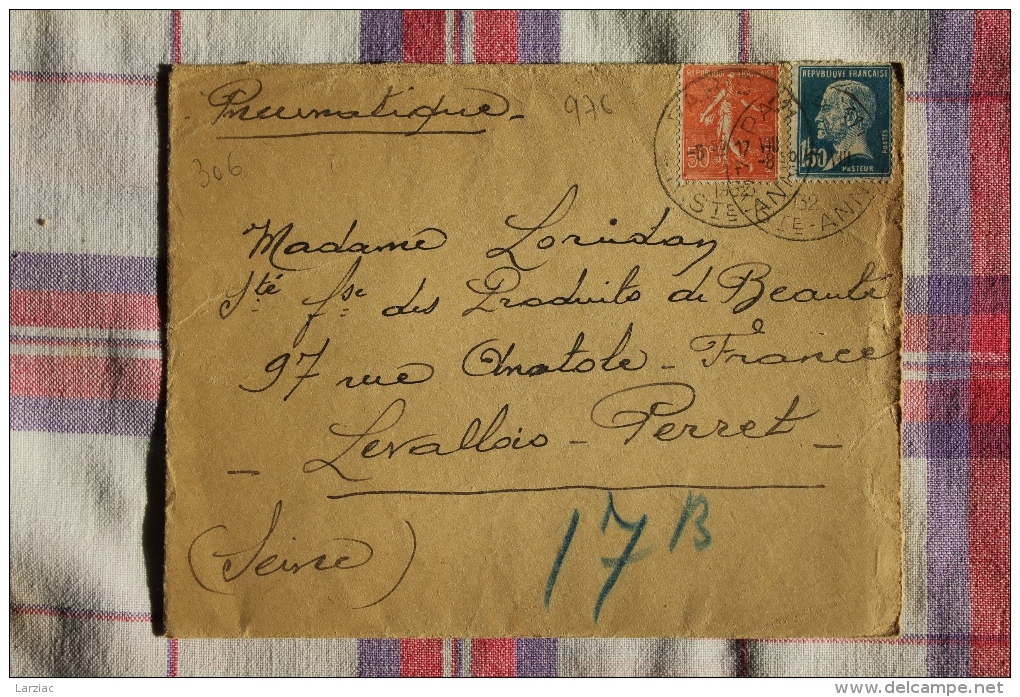 Pneumatique
97C
306
RÉPUBLIQUE FRANÇAISE
50
REPVBLIQUE FRANÇAISE
POSTES
1f50
PASTEUR
17 VIII
-8
1932
STE-ANNE
32
STE-ANNE
Madame Loridon
Sté fse des Produits de Beauté
97 rue Anatole-France
- Levallois-Perret -
(Seine)
17 B
Larziac
www.delcampe.net